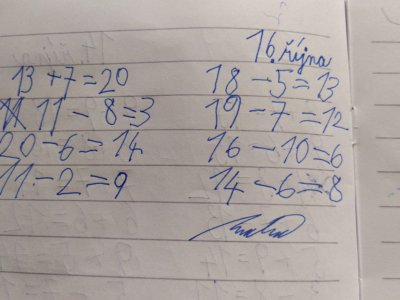 16. října
13 + 7 = 20 18 - 5 = 13
11 - 8 = 3 19 - 7 = 12
20 - 6 = 14 16 - 10 = 6
11 - 2 = 9 14 - 6 = 8